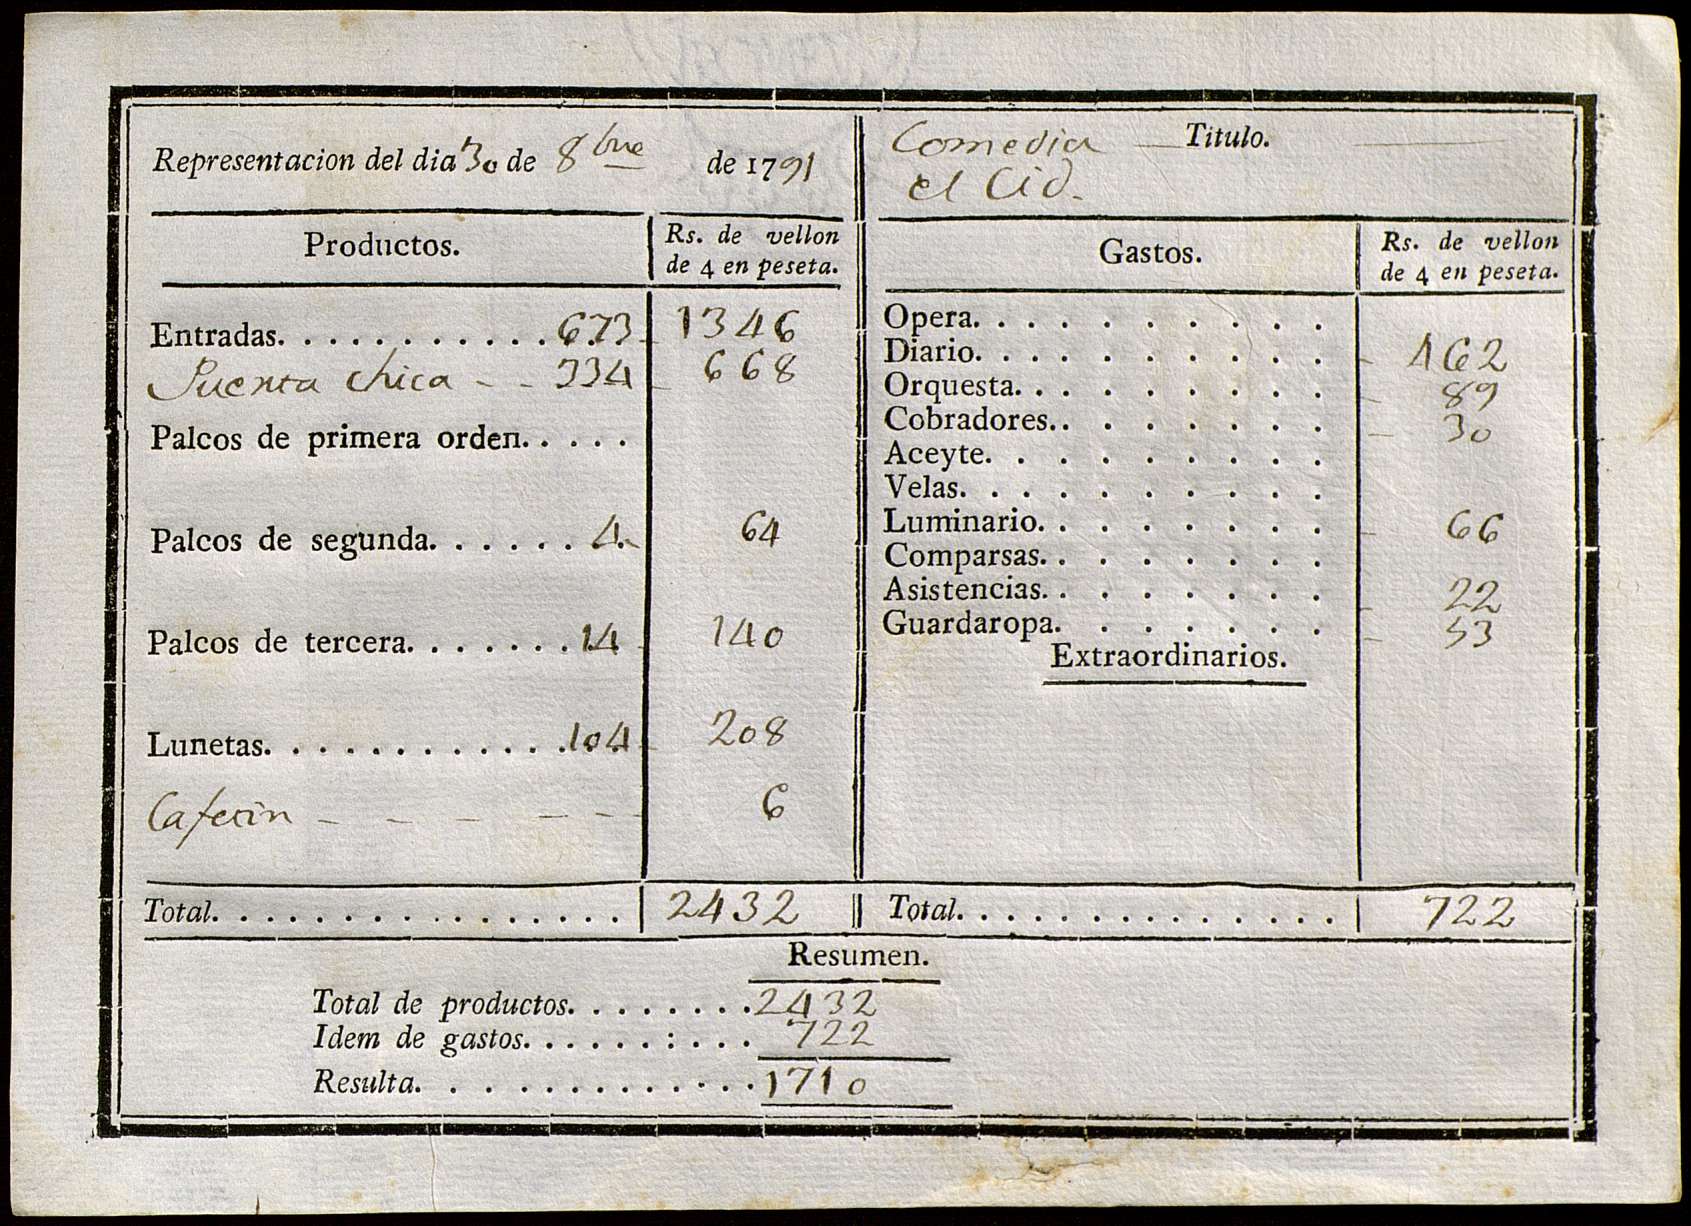 Representacion del dia 30 de 8bre de 1791
Comedia — Titulo. —
el Cid.
Productos.
Rs. de vellon
de 4 en peseta.
Entradas. . . . . . . . . . . 673 1346
Puerta chica - - 334 668
Palcos de primera orden. . . . .
Palcos de segunda. . . . . . 4 64
Palcos de tercera. . . . . . . 14 140
Lunetas. . . . . . . . . . . . 104 208
Cafetin - - - - - - 6
Total. . . . . . . . . . . . . . . . 2432
Gastos.
Rs. de vellon
de 4 en peseta.
Opera. . . . . . . . . .
Diario. . . . . . . . . . 462
Orquesta. . . . . . . . . 89
Cobradores. . . . . . . . 30
Aceyte. . . . . . . . .
Velas. . . . . . . . . .
Luminario. . . . . . . . 66
Comparsas. . . . . . . .
Asistencias. . . . . . . . 22
Guardaropa. . . . . . . 53
Extraordinarios.
Total. . . . . . . . . . . . . . . 722
Resumen.
Total de productos. . . . . . . . 2432
Idem de gastos. . . . . . : . . . 722
Resulta. . . . . . . . . . . . . . 1710